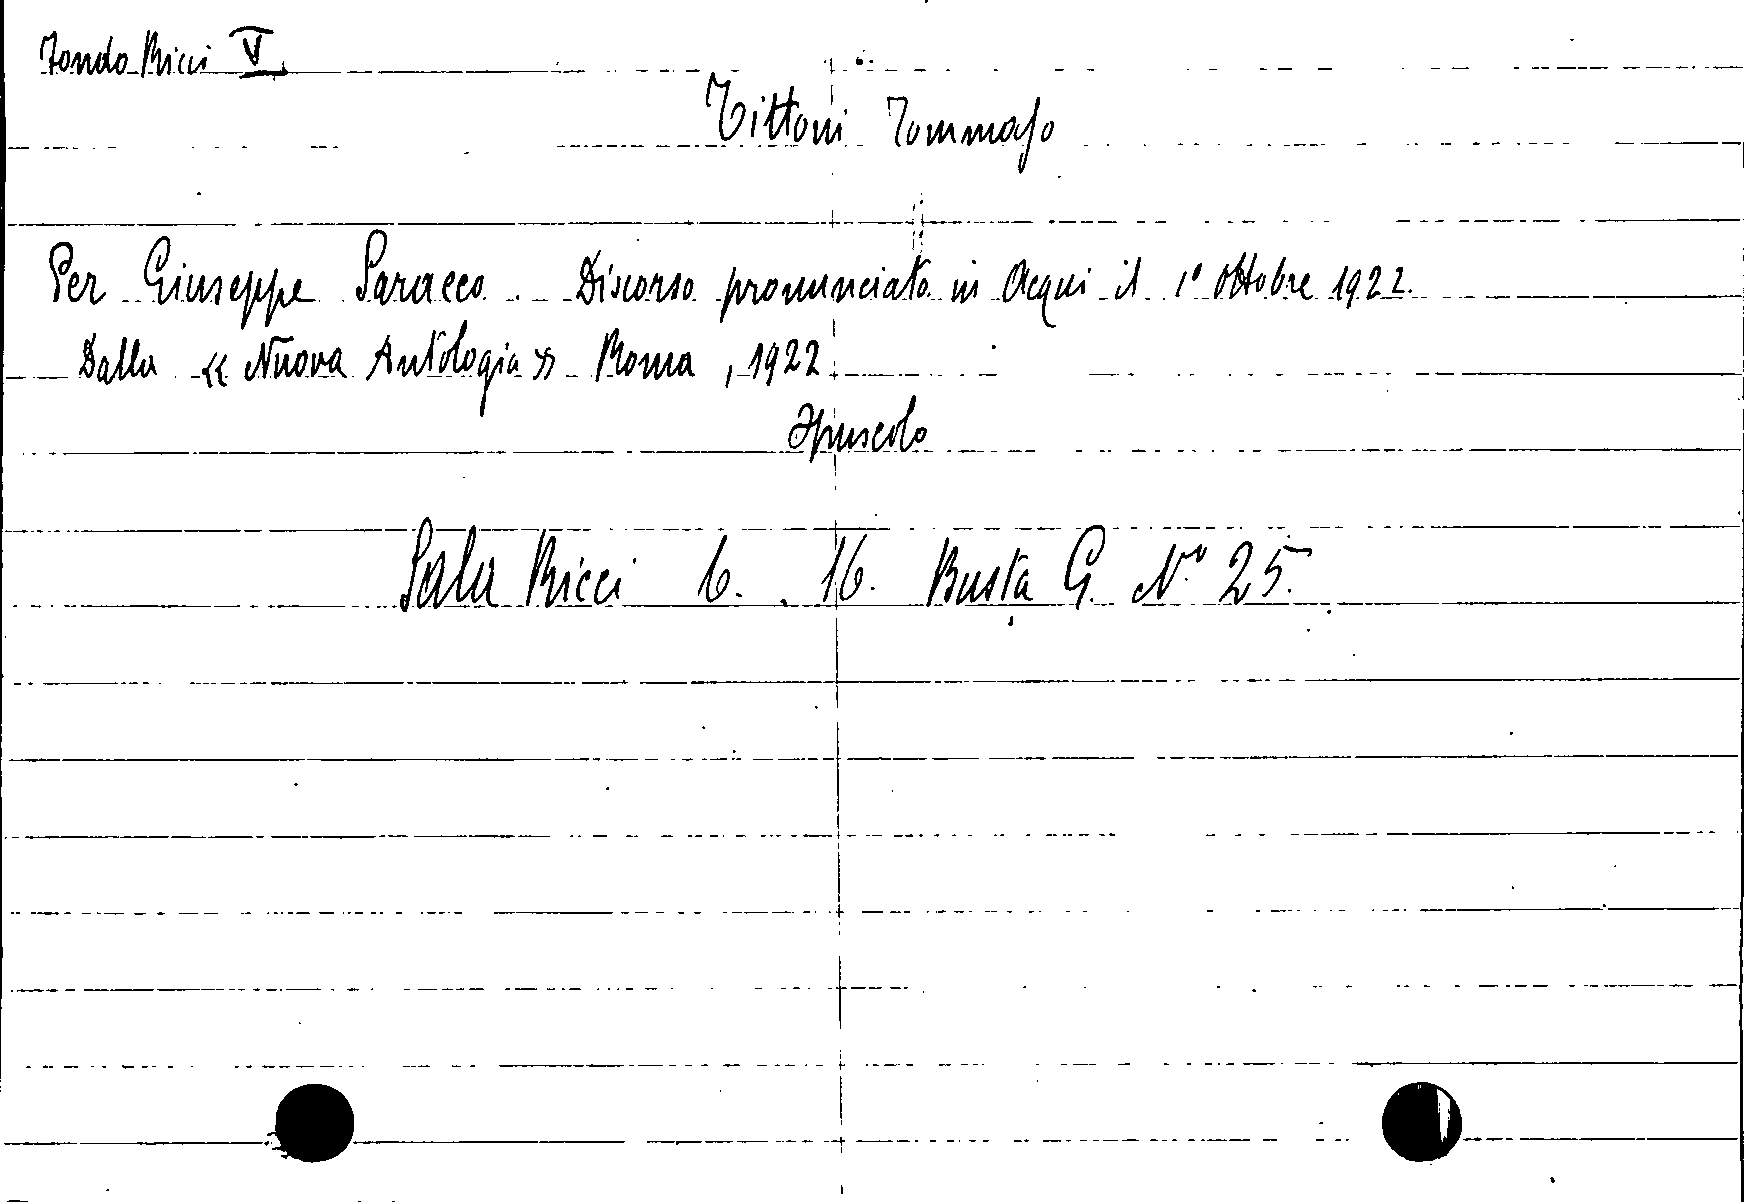 Fondo Ricci V
Tittoni Tommaso
Per Giuseppe Saracco. Discorso pronunciato in Acqui il 1° ottobre 1922.
Dalla « Nuova Antologia » Roma, 1922
Opuscolo
Sala Ricci 6. 16. Busta G. N° 25.